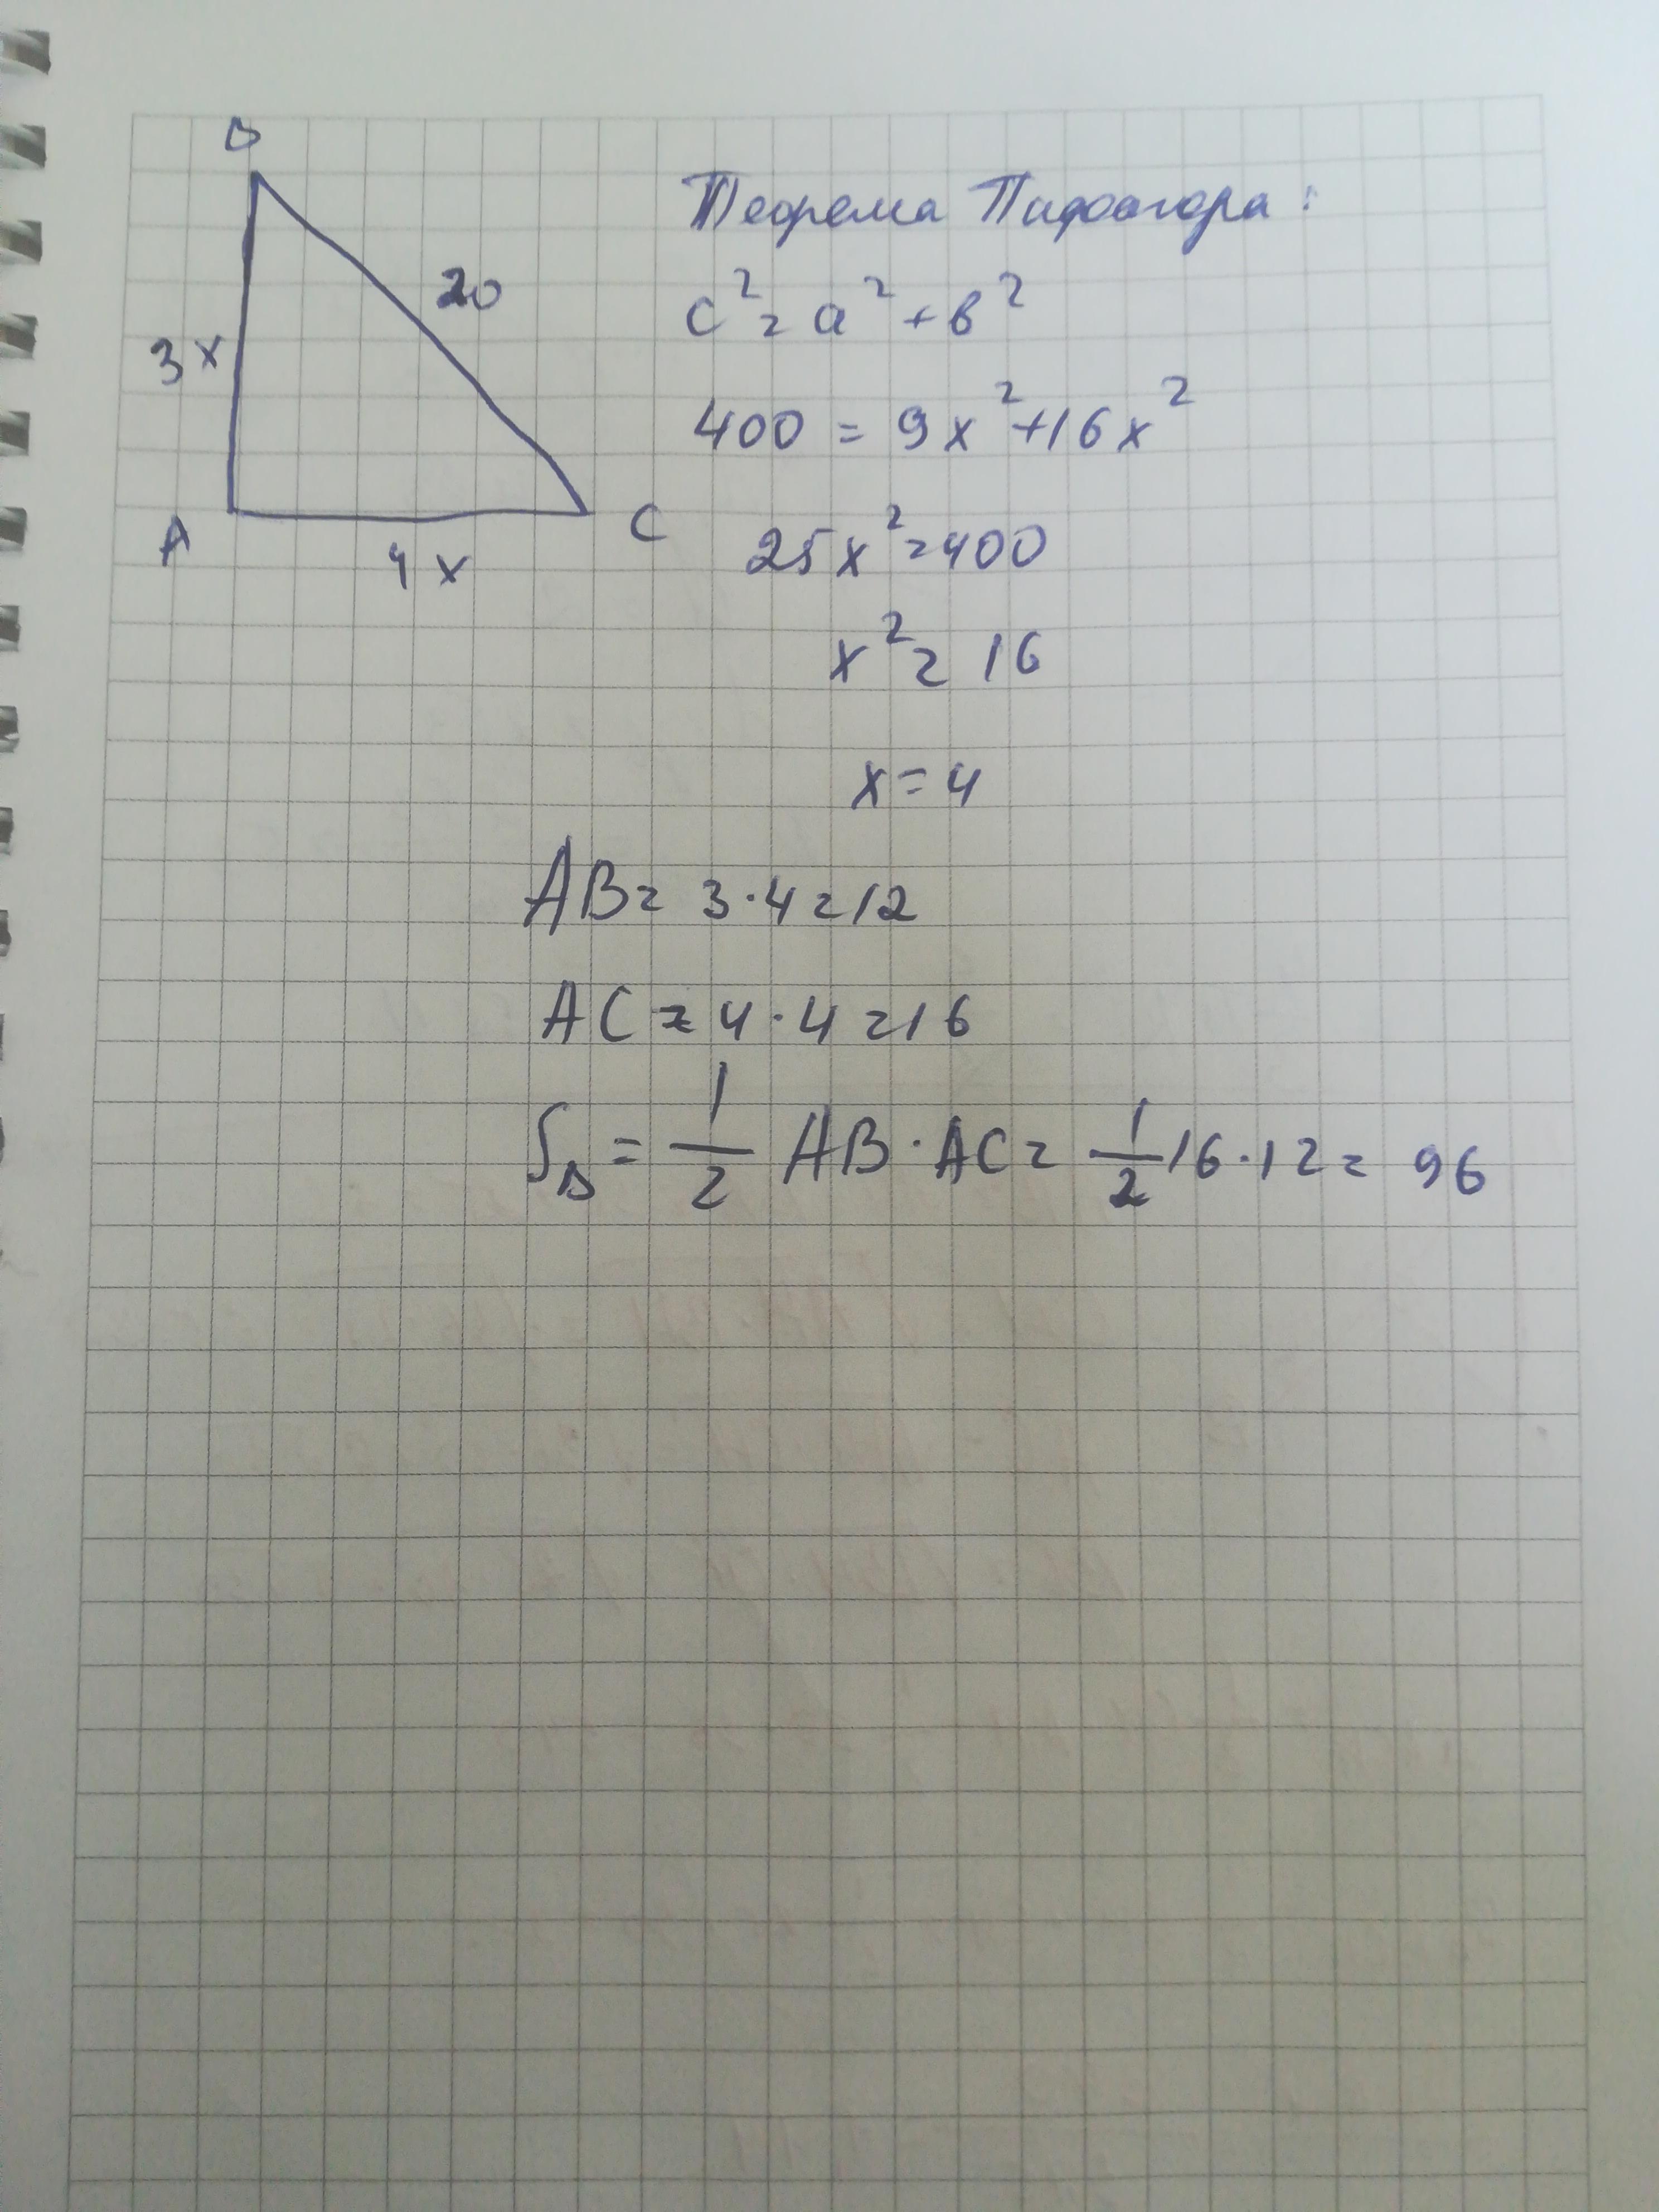 В
20
3x
А
4x
С
Теорема Пифагора:
c² = a² + в²
400 = 9x² + 16x²
25x² = 400
x² = 16
x = 4
AB = 3·4 = 12
AC = 4·4 = 16
S△ = 1/2 AB·AC = 1/2 16·12 = 96